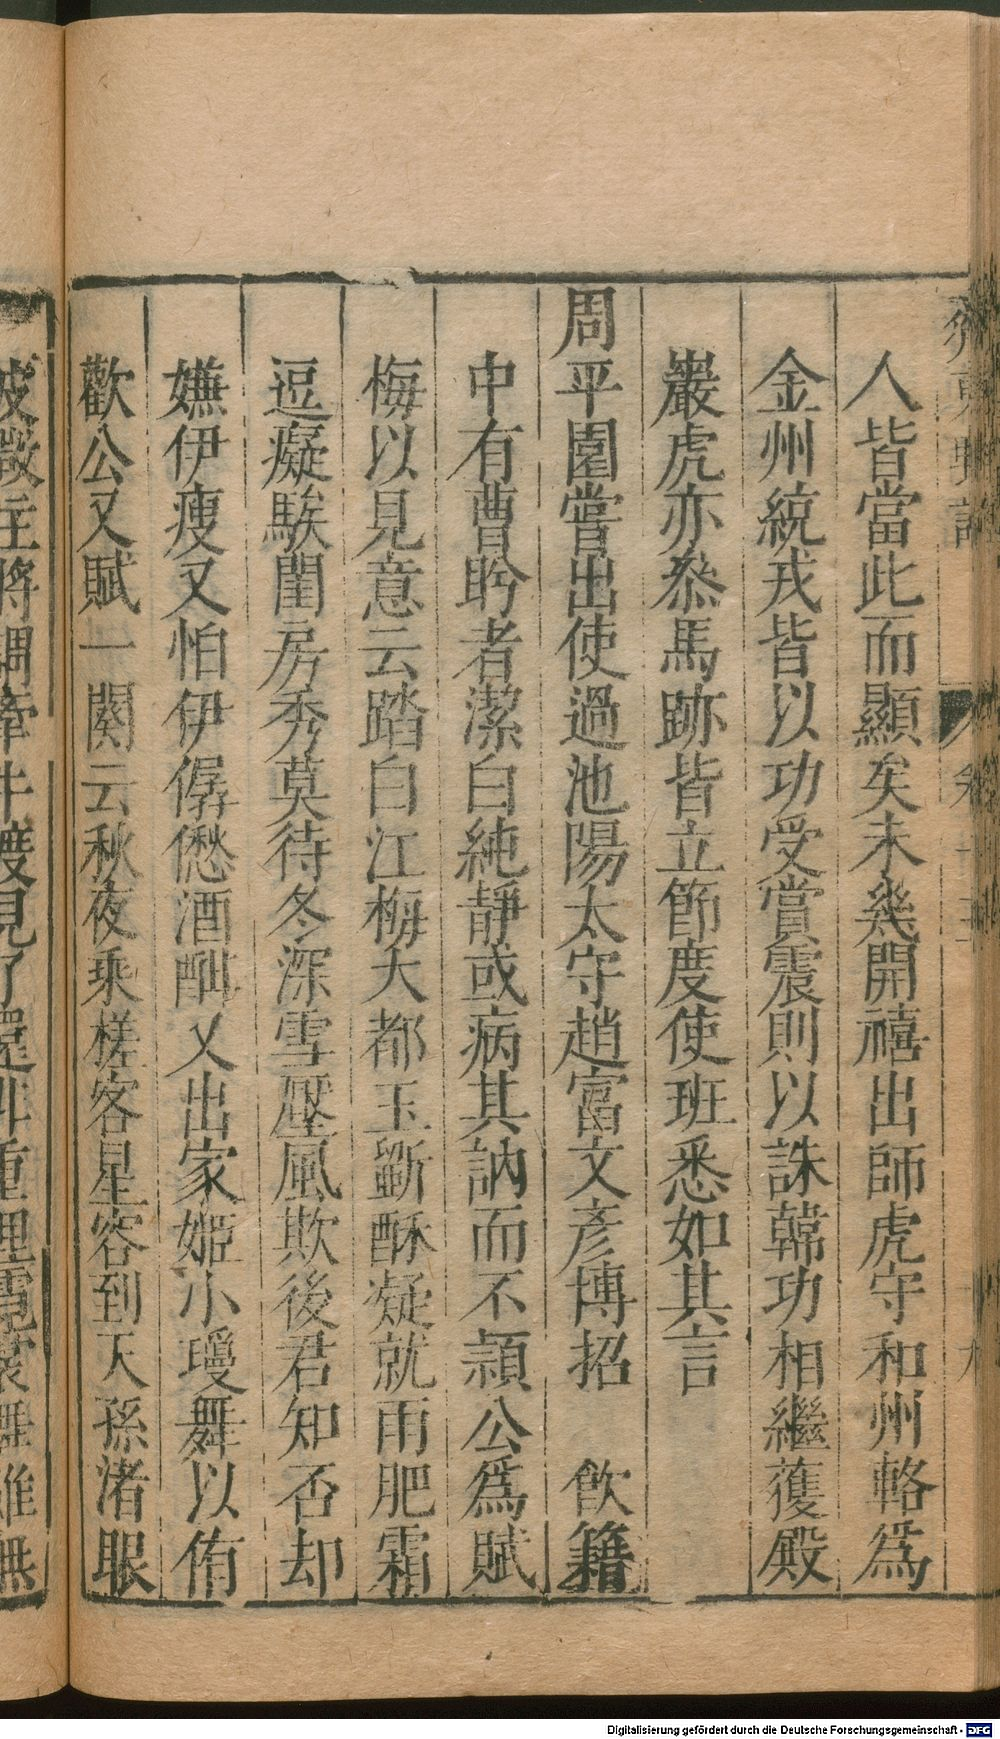 人皆當此而顯矣未幾開禧出師虎守和州輅爲
金州統戎皆以功受賞震則以誅韓功相繼䕶殿
巖虎亦叅馬跡皆立節度使班悉如其言
周平園嘗出使過池陽太守趙富文彥博招 飮籍
中有曹盻者潔白純靜或病其訥而不頴公爲賦
梅以見意云踏白江梅大都玉斵酥凝就雨肥霜
逗癡騃閨房秀莫待冬深雪壓風欺後君知否却
嫌伊瘦又怕伊僝僽酒酣乂出家姬小瓊舞以侑
歡公又賦一闋云秋夜乘槎客星容到天孫渚眼
Digitalisierung gefördert durch die Deutsche Forschungsgemeinschaft - DFG